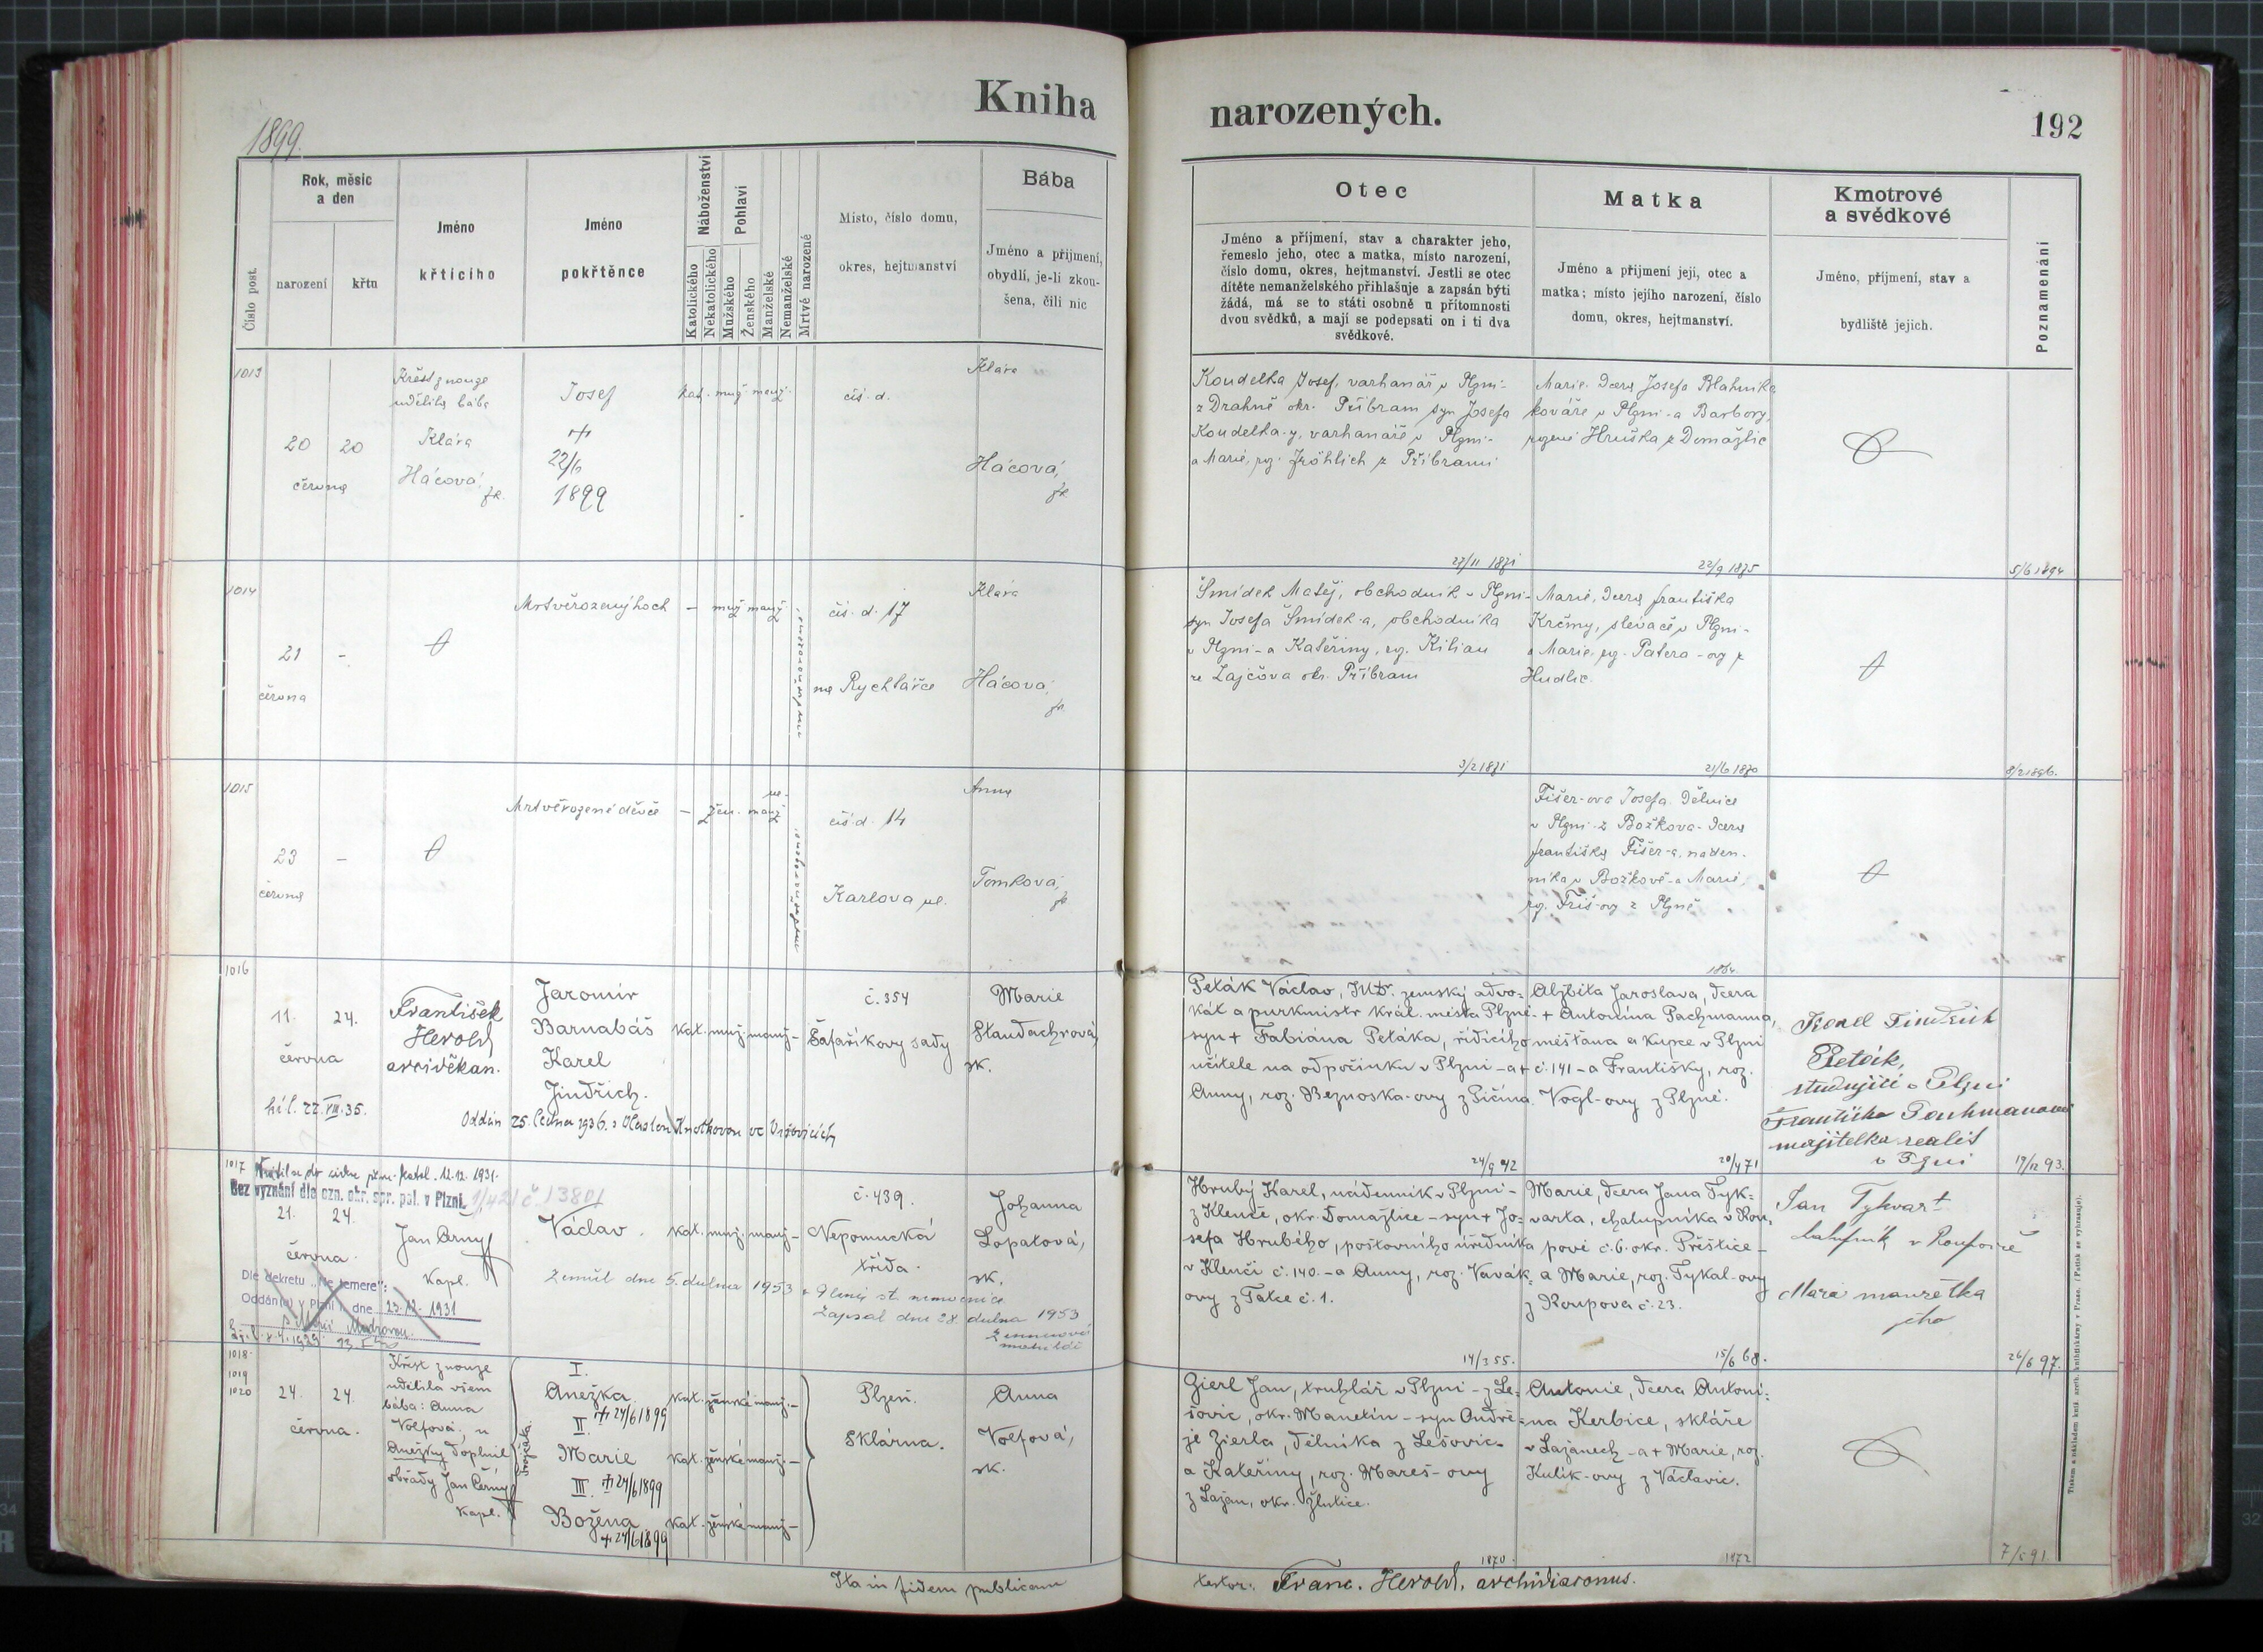 Kniha
narozených.
192
1899.
Číslo post.
Rok, měsíc
a den
narození
křtu
Jméno
křtícího
Jméno
pokřtěnce
Náboženství
Katolického
Nekatolického
Pohlaví
Mužského
Ženského
Manželské
Nemanželské
Mrtvě narozené
Místo, číslo domu,
okres, hejtmanství
Bába
Jméno a příjmení,
obydlí, je-li zkou-
šena, čili nic
Otec
Jméno a příjmení, stav a charakter jeho,
řemeslo jeho, otec a matka, místo narození,
číslo domu, okres, hejtmanství. Jestli se otec
dítěte nemanželského přihlašuje a zapsán býti
žádá, má se to státi osobně u přítomnosti
dvou svědků, a mají se podepsati on i ti dva
svědkové.
Matka
Jméno a příjmení její, otec a
matka; místo jejího narození, číslo
domu, okres, hejtmanství.
Kmotrové
a svědkové
Jméno, příjmení, stav a
bydliště jejich.
Poznamenání
1013
20
20
června
Křest z nouze
udělila bába
Klára
Hácová,
zk.
Josef
22/6
1899
kat. muž. manž.
čís. d.
Klára
Hácová,
zk.
Koudelka Josef, varhanář v Plzni-
z Drahně okr. Příbram syn Josefa
Koudelka-y, varhanáře v Plzni-
a Marie, roz. Fröhlich z Příbrami
23/11 1871
Marie, dcera Josefa Blahníka
kováře v Plzni-a Barbory,
rozené Hruška z Domažlic
22/9 1875
5/6 1894
1014
21
-
června
Mrtvěrozený hoch
- muž manž
čís. d. 17
na Rychtářce
Klára
Hácová,
zk.
Šmídek Matěj, obchodník v Plzni-
syn Josefa Šmídek-a, obchodníka
v Plzni-a Kateřiny, roz. Kilian
ze Zajčova okr. Příbram
3/2 1871
Marie, dcera Františka
Krčmy, slevače v Plzni-
a Marie, roz. Patera-ovy z
Hudlic.
21/6 1870
8/2 1896.
1015
23
-
června
Mrtvěrozené děvče
- žen. ne-
manž
čís. d. 14
Karlova ul.
Anna
Tomková,
zk.
Fišer-ova Josefa. Dělnice
v Plzni-z Božkova-dcera
Františka Fišer-a, náden-
níka v Božkově-a Marie,
roz. Friš-ovy z Plzně
1864
1016
11.
24.
června
František
Herold
arciděkan.
Jaromír
Barnabáš
Karel
Jindřich.
kat. muž. manž-
č. 354
Šafaříkovy sady
Marie
Staudachrová,
zk.
Peták Václav, JUDr. zemský advo-
kát a purkmistr král. města Plzně-
syn + Fabiána Petáka, řídícího
učitele na odpočinku v Plzni-a +
Anny, roz. Beznoska-ovy z Jičína.
24/9 42
Alžběta Jaroslava, dcera
+ Antonína Pachmanna,
měšťana a kupce v Plzni
č. 141-a Františky, roz.
Vogl-ovy z Plzně.
20/4 71
Karel Jindřich
Peták,
studující v Plzni
Františka Pachmanová
majitelka realit
v Plzni
19/12 93.
hl. 22.VIII.35.
1017
Bez vyznání dle ozn. okr. spr. pol. v Plzni.
21.
24.
června.
Jan Černý
kapl.
Václav.
kat. muž. manž-
č. 439.
Nepomucká
třída.
Johanna
Lopatová,
zk.
Zemřel dne 5. dubna 1953
Zapsal dne 28. dubna 1953
Dle dekretu „Ne temere“:
Oddán(a) v Plzni dne 23.12. 1931
Hrubý Karel, nádenník v Plzni-
z Klenčí, okr. Domažlice-syn + Jo-
sefa Hrubého, poštovního úředníka
v Klenčí č. 140.-a Anny, roz. Vavák-
ovy z Tatce č. 1.
14/3 55.
Marie, dcera Jana Tyk-
varta, chalupníka v Rou-
pově č. 6. okr. Přeštice-
a Marie, roz. Tykal-ovy
z Roupova č. 23.
15/6 68.
Jan Tykvart
chalupník v Roupově
Marie manželka
jeho
26/6 97.
1018
1019
1020
24.
24.
června.
Křest z nouze
udělila všem
bába: Anna
Volfová, u
Anežky doplnil
obřady Jan Černý
kapl.
trojčata.
I.
Anežka
24/6 1899
II.
Marie
III. 24/6 1899
Božena
24/6 1899
kat. ženské manž.-
kat. ženské manž.-
kat. ženské manž-
Plzeň.
Sklárna.
Anna
Volfová,
zk.
Gierl Jan, truhlář v Plzni-z Le-
šovic, okr. Manetín-syn Ondře-
je Zierla, dělníka z Lešovic-
a Kateřiny, roz. Mareš-ovy
z Lažan, okr. Žlutice.
1870.
Antonie, dcera Antoní-
na Kerbice, skláře
v Lažanech-a + Marie, roz.
Kulík-ovy z Václavic.
1872
Ita in fidem publicam
testor: Franc. Herold, archidiaconus.